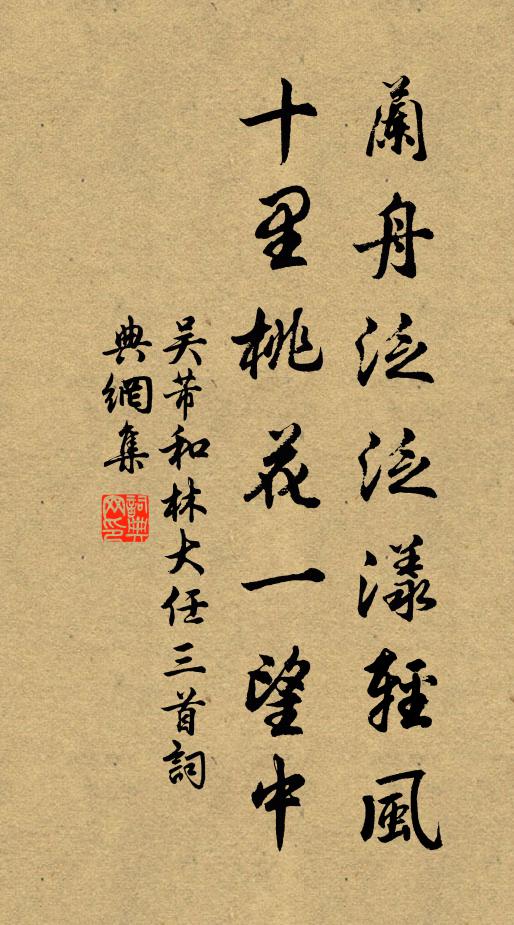 蘭舟泛泛漾輕風
十里桃花一望中
吴芾和林大任三首詞
典網集
詞典
网印